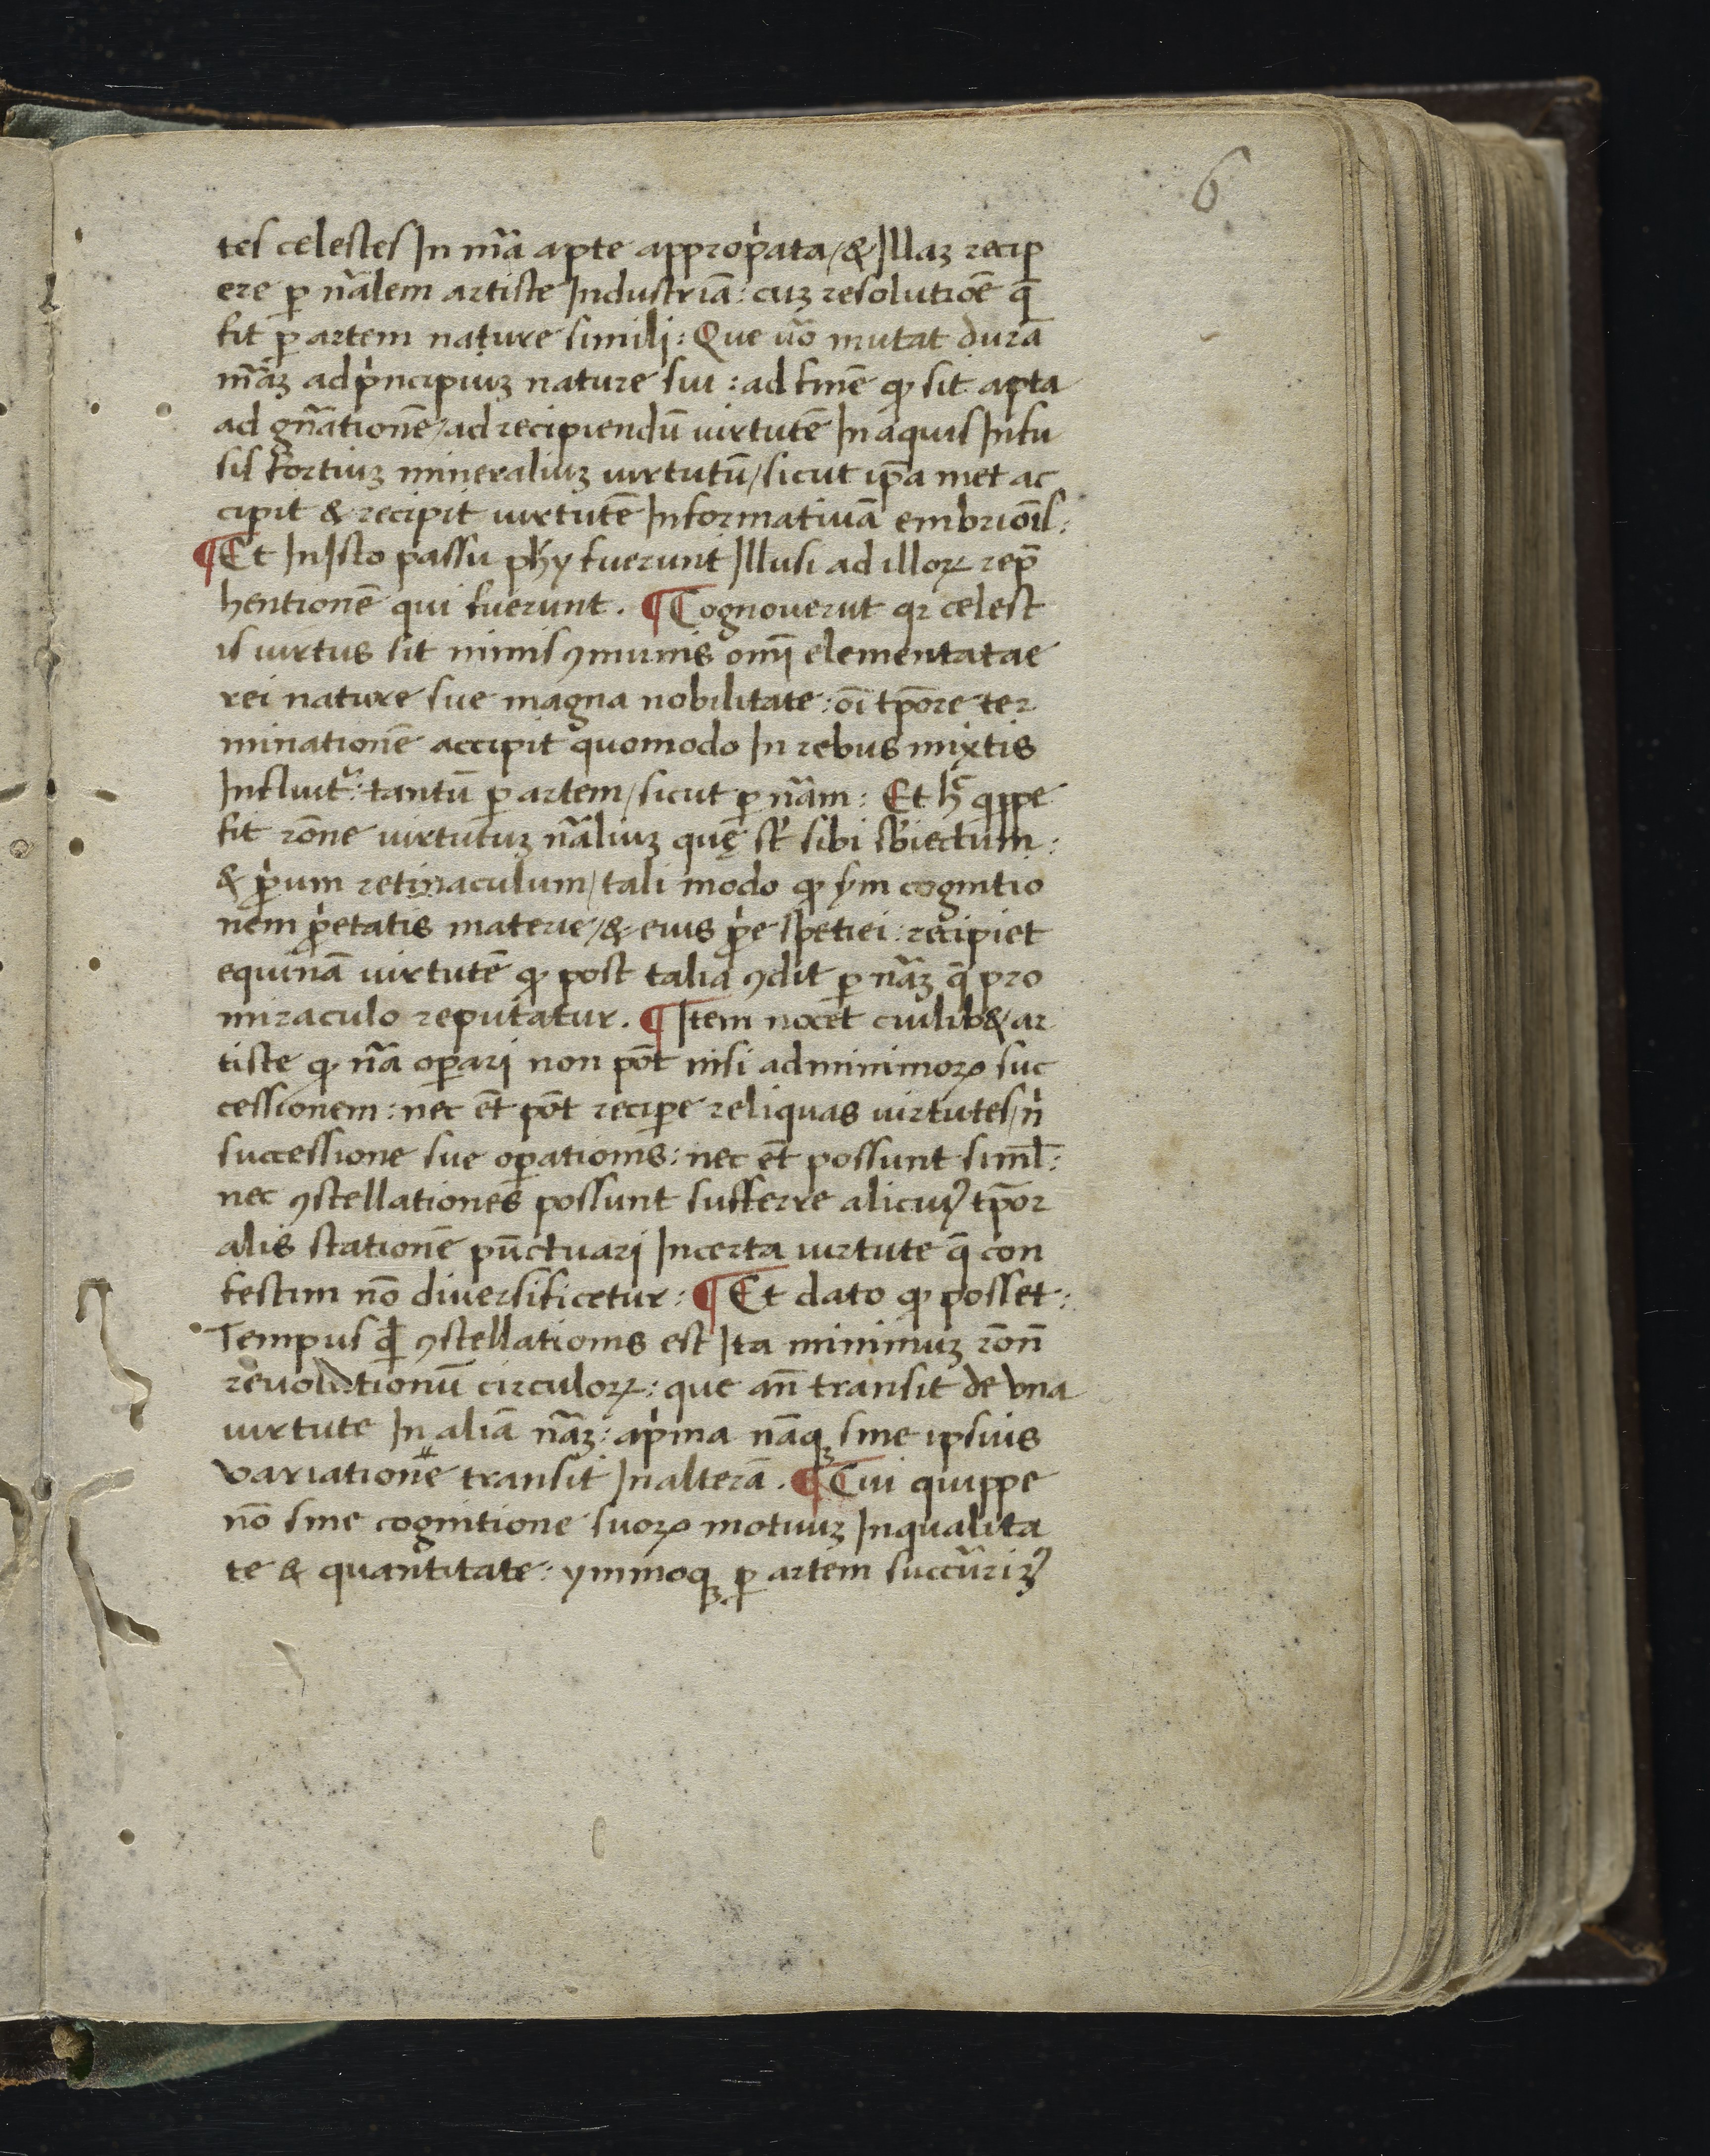 6
tes celestes In mã apte appropata / & Illaꝫ recip
ere ꝑ nãlem artiste Industriã : cuꝫ resolutiõe q̃
fit ꝑ artem nature simili : Que uõ mutat durã
mãꝫ ad pncipiuꝫ nature sui : ad finẽ ꝙ sit apta
ad gñationẽ / ad recipiendũ uirtutẽ In aquis Infu
sis fortiuꝫ mineraliuꝫ uirtutũ / sicut ip̃a met ac
cipit & recipit uirtutẽ Informatiuã embriõis :
¶ Et In Isto passu phy fuerunt Illusi ad illoꝝ rep̃
hentionẽ qui fuerunt . ¶ Cognouerut qr celest
is uirtus sit nimis ꝯmunis omĩ elementatae
rei nature sue magna nobilitate : oĩ tp̃ore ter
minationẽ accipit quomodo In rebus mixtis
Influit᷑ : tantũ ꝑ artem / sicut ꝑ nãm : Et hͨ qppe
fit rõne uirtutuꝫ nãliuꝫ quę st̃ sibi sbiectum :
& p̱rium retinaculum / tali modo ꝙ sm cognitio
nem ꝓetatis materie / & eius ꝓe spetiei : recipiet
equinã uirtutẽ ꝙ post talia ꝯdit ꝑ nãꝫ q̃ pro
miraculo reputatur . ¶ Item nocet cuilib& / ar
tiste ꝙ nã oꝑari non põt nisi ad minimoꝝ suc
cessionem : nec ẽt põt reciꝑe reliquas uirtutes / ñ
successione sue oꝑationis : nec ẽt possunt siml̃ :
nec ꝯstellationes possunt sufferre alicuiꝰ tp̃or
alis stationẽ pũctuari In certa uirtute q̃ con
festim nõ diuersificetur : ¶ Et dato ꝙ posset :
Tempus qͥ ꝯstellationis est Ita minimuꝫ rõn̄
reuolutionũ circuloꝝ : que añ transit de una
uirtute In aliã nãꝫ : a pma nãqꝫ sine ipsius
variatione transit In alterã . ¶ Cui quippe
nõ sine cognitione suoꝝ motuuꝫ In qualita
te & quantitate : ymmoqꝫ ꝑ artem succũrimꝰ